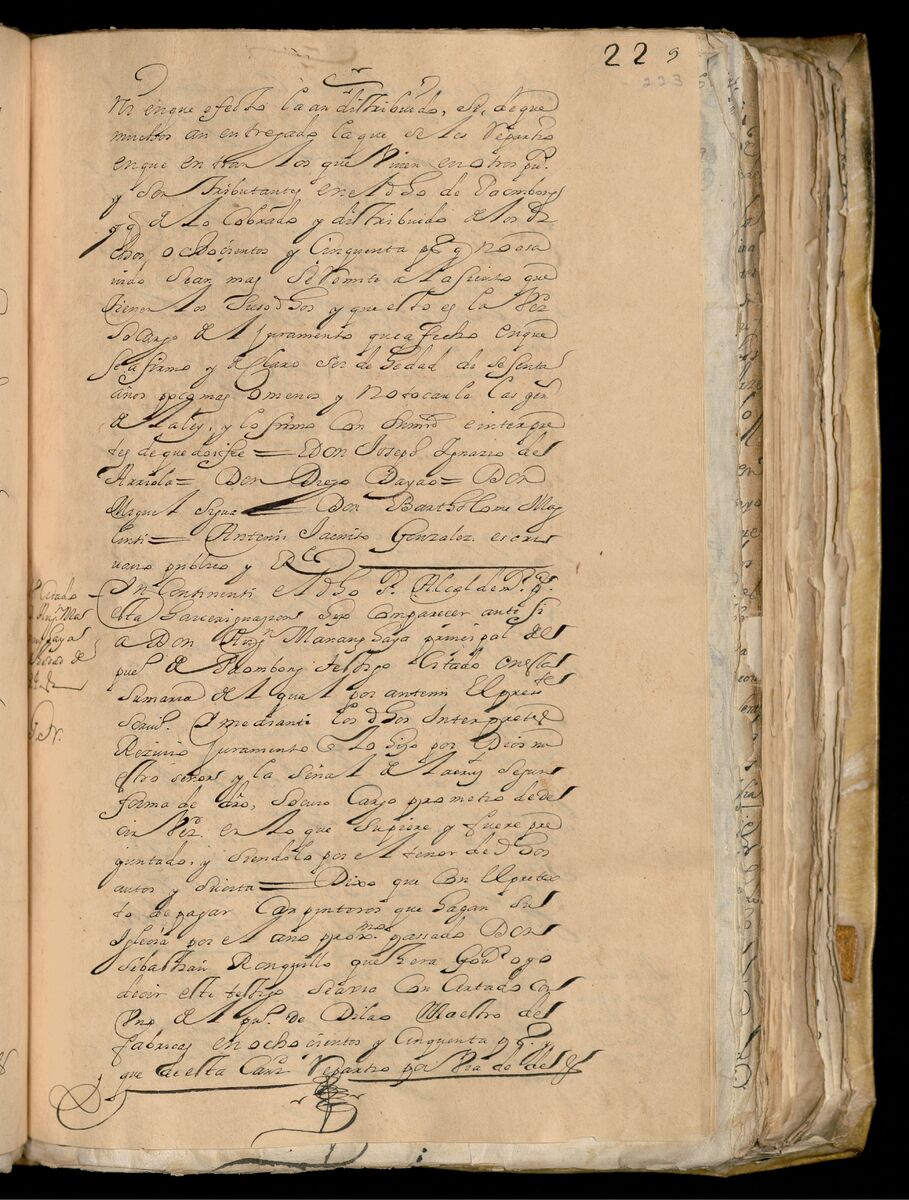 22 9
223
Ni en que efecto la an distribuido, se, de que
muchos an entregado la que se les Repartio
en que entran los que Viven en otros pus.
y son tributantes en el dho de Paombong
y q de lo Cobrado y distribuido de los d
chos ochocientos y Cinquenta ps q no a sa
uido sean mas se Remite a la siento que
tienen los suso dhos y que esto es la Ver
so cargo del juramento que a fecho en que
se afirmo y declaro ser de hedad de sesenta
años poco mas o menos y no tocarle las gen
de la ley, y lo firmo con su md e interpre
tes de que doi fee = Don Joseph Ignacio de
Arriola = Don Diego Dayao = Don
Miguel = Don Bartholome Mag
= Antemi Jacinto Gonzalez escri
uano publico y Rl
In Continenti el dho Sr Alcalde mr. por
esta hizo comparecer ante si
a Don Manang haya principal del
pueo de Paombong testigo Citado en esta
sumaria del qual por antemi El preste
scriuo. y mediante los dhos Interpretes
Reziuio juramento q lo hizo por Dios nu
estro señor y la señal de la cruz segun
forma de dro, so cuio Cargo prometio de de
cir Ver. en lo que supiere y fuere pre
guntado, y siendolo por el tenor de dhos
autos y = Dixo que con El pretex
to de pagar Carpinteros que hagan su
Iglesia por el año proxmo. passado Don
Sebastian Ronquillo que hera Gour oyo
decir este testigo se auia Con Certado con
Vno del puo. de Dilao Maestro de
fabricas en ochocientos y Cinquenta ps
que de esta Cantd Repartio por
Citado